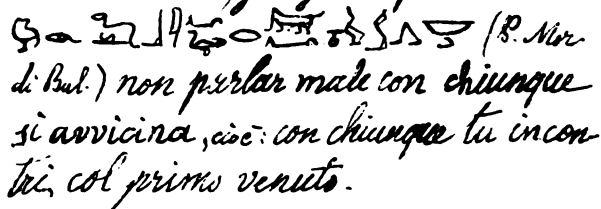 (P. Mor-
di Bul.) non parlar male con chiunque
si avvicina, cioè: con chiunque tu incon-
tri, col primo venuto.